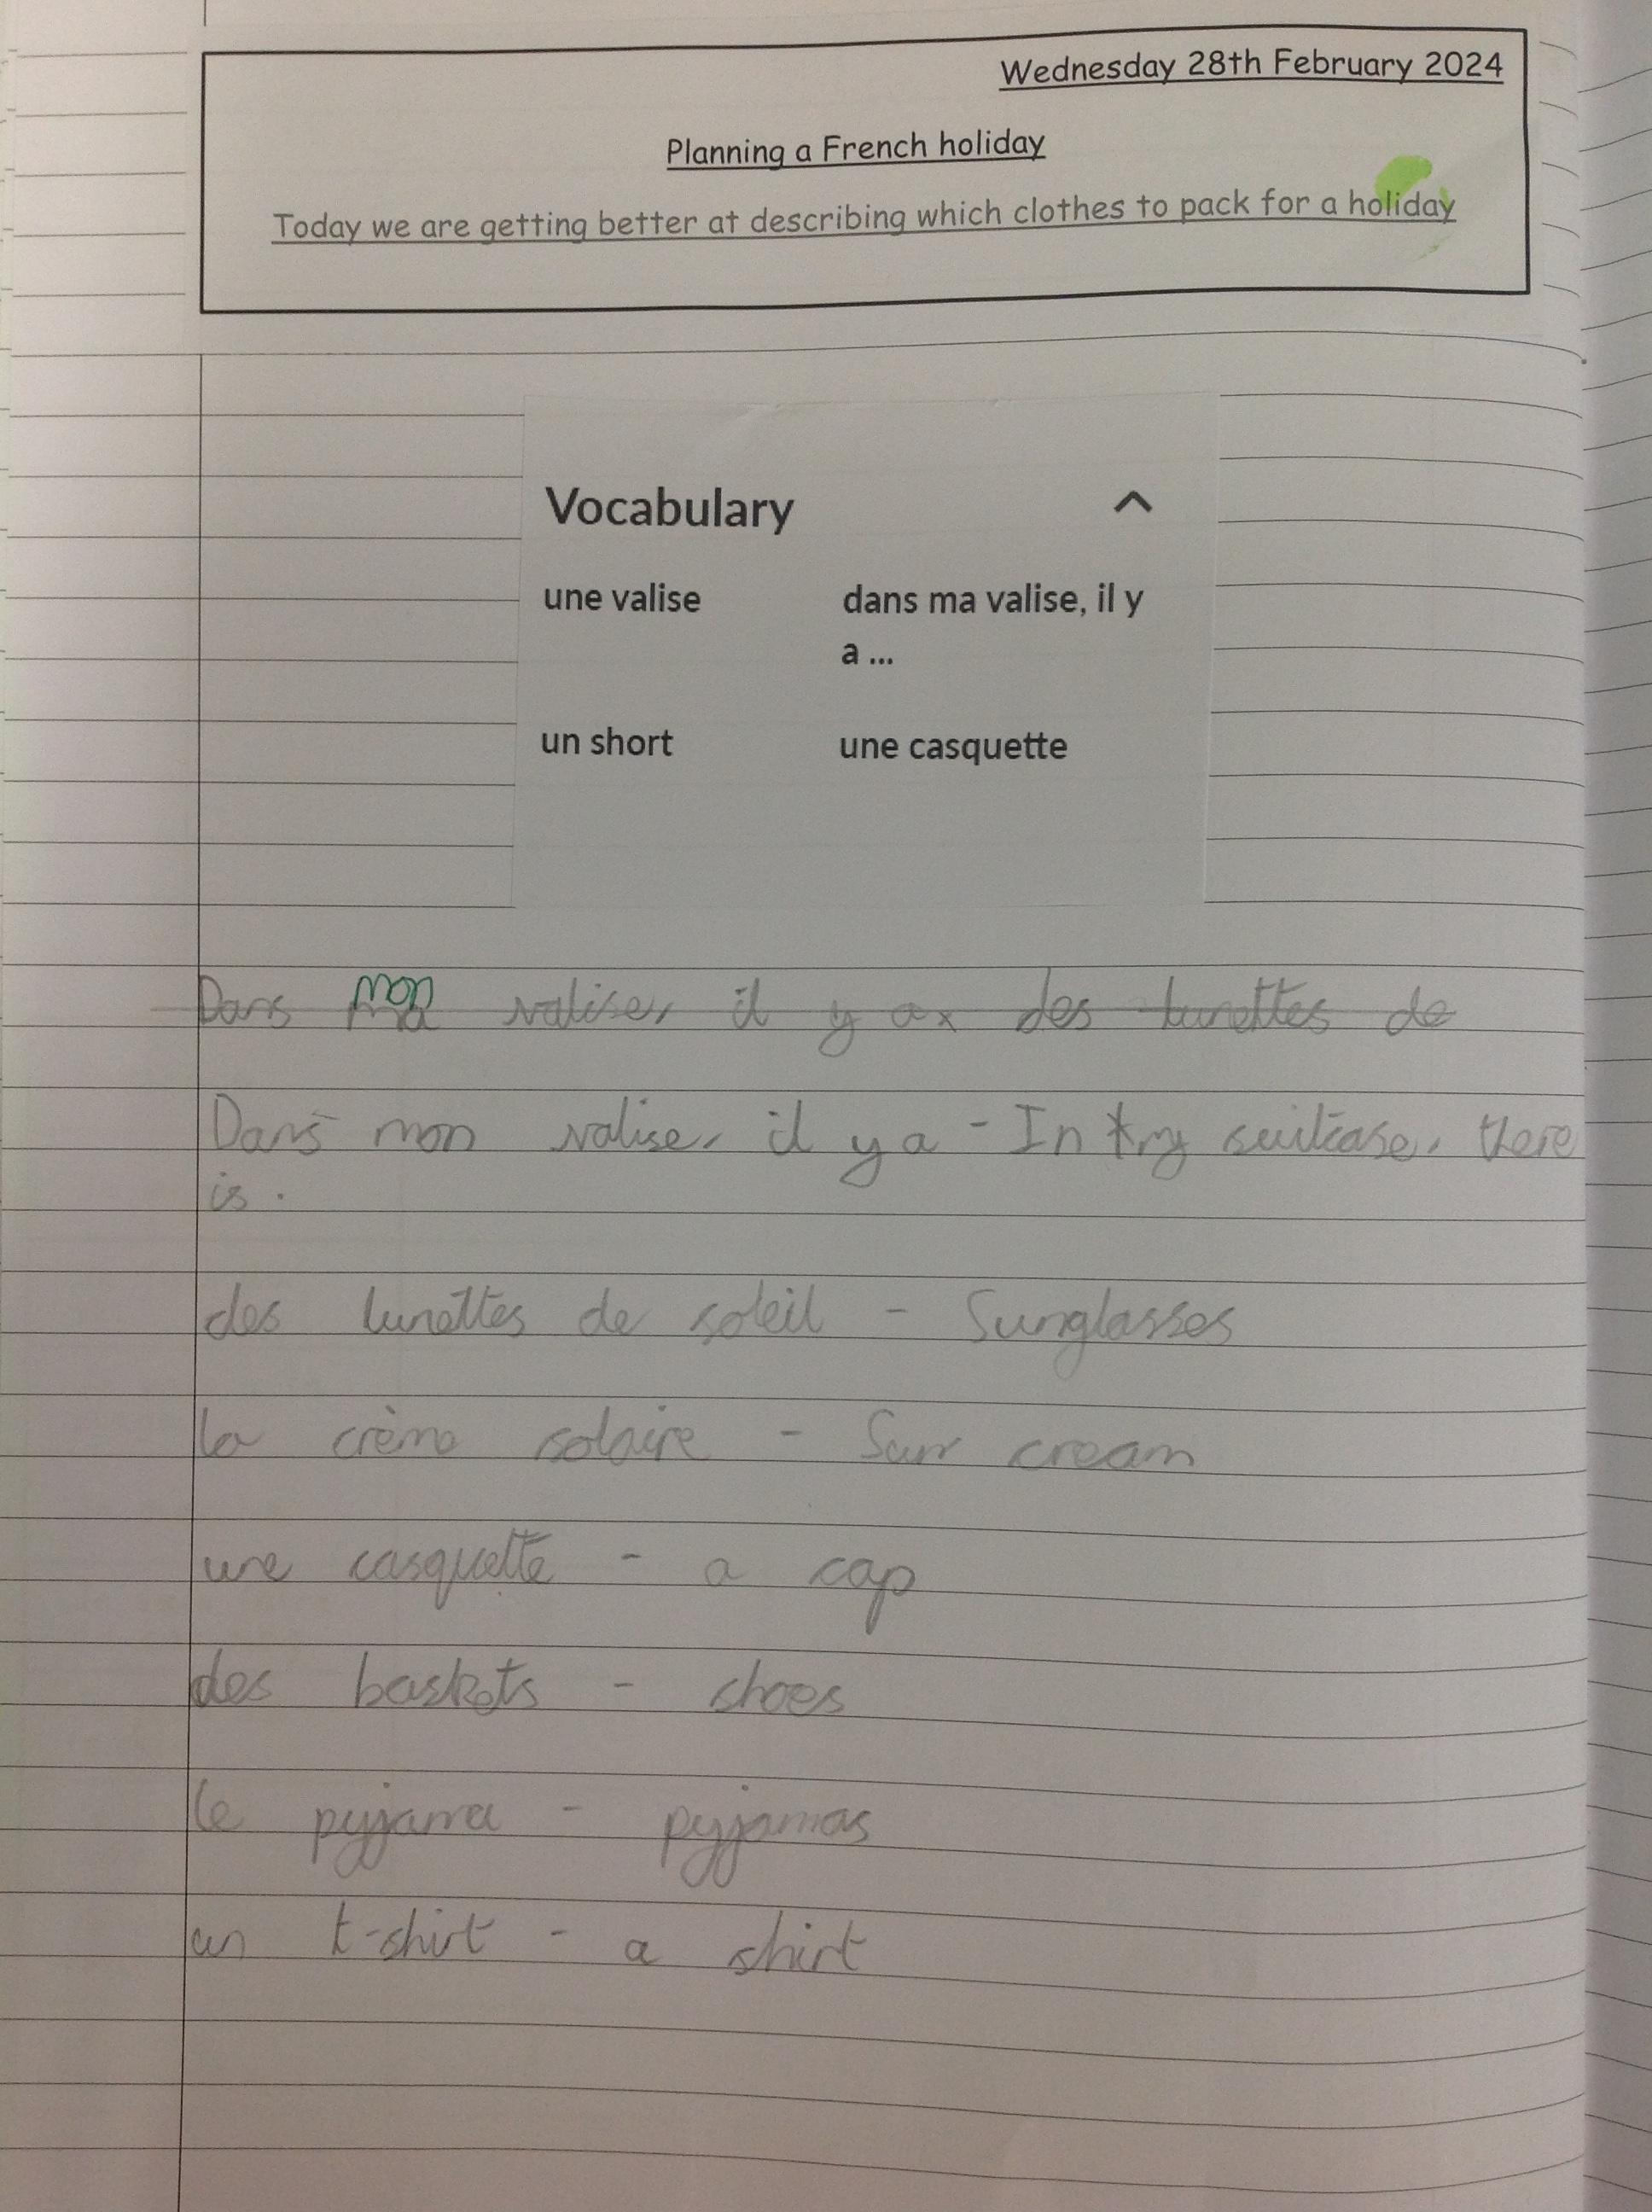 Wednesday 28th February 2024
Planning a French holiday
Today we are getting better at describing which clothes to pack for a holiday
Vocabulary
une valise dans ma valise, il y
a ...
un short une casquette
mon
Dans ma valise, il y a des lunettes de
Dans mon valise, il y a - In my suitcase, there
is.
des lunettes de soleil - Sunglasses
la crème solaire - Sun cream
une casquette - a cap
des baskets - shoes
le pyjama - pyjamas
un t-shirt - a shirt